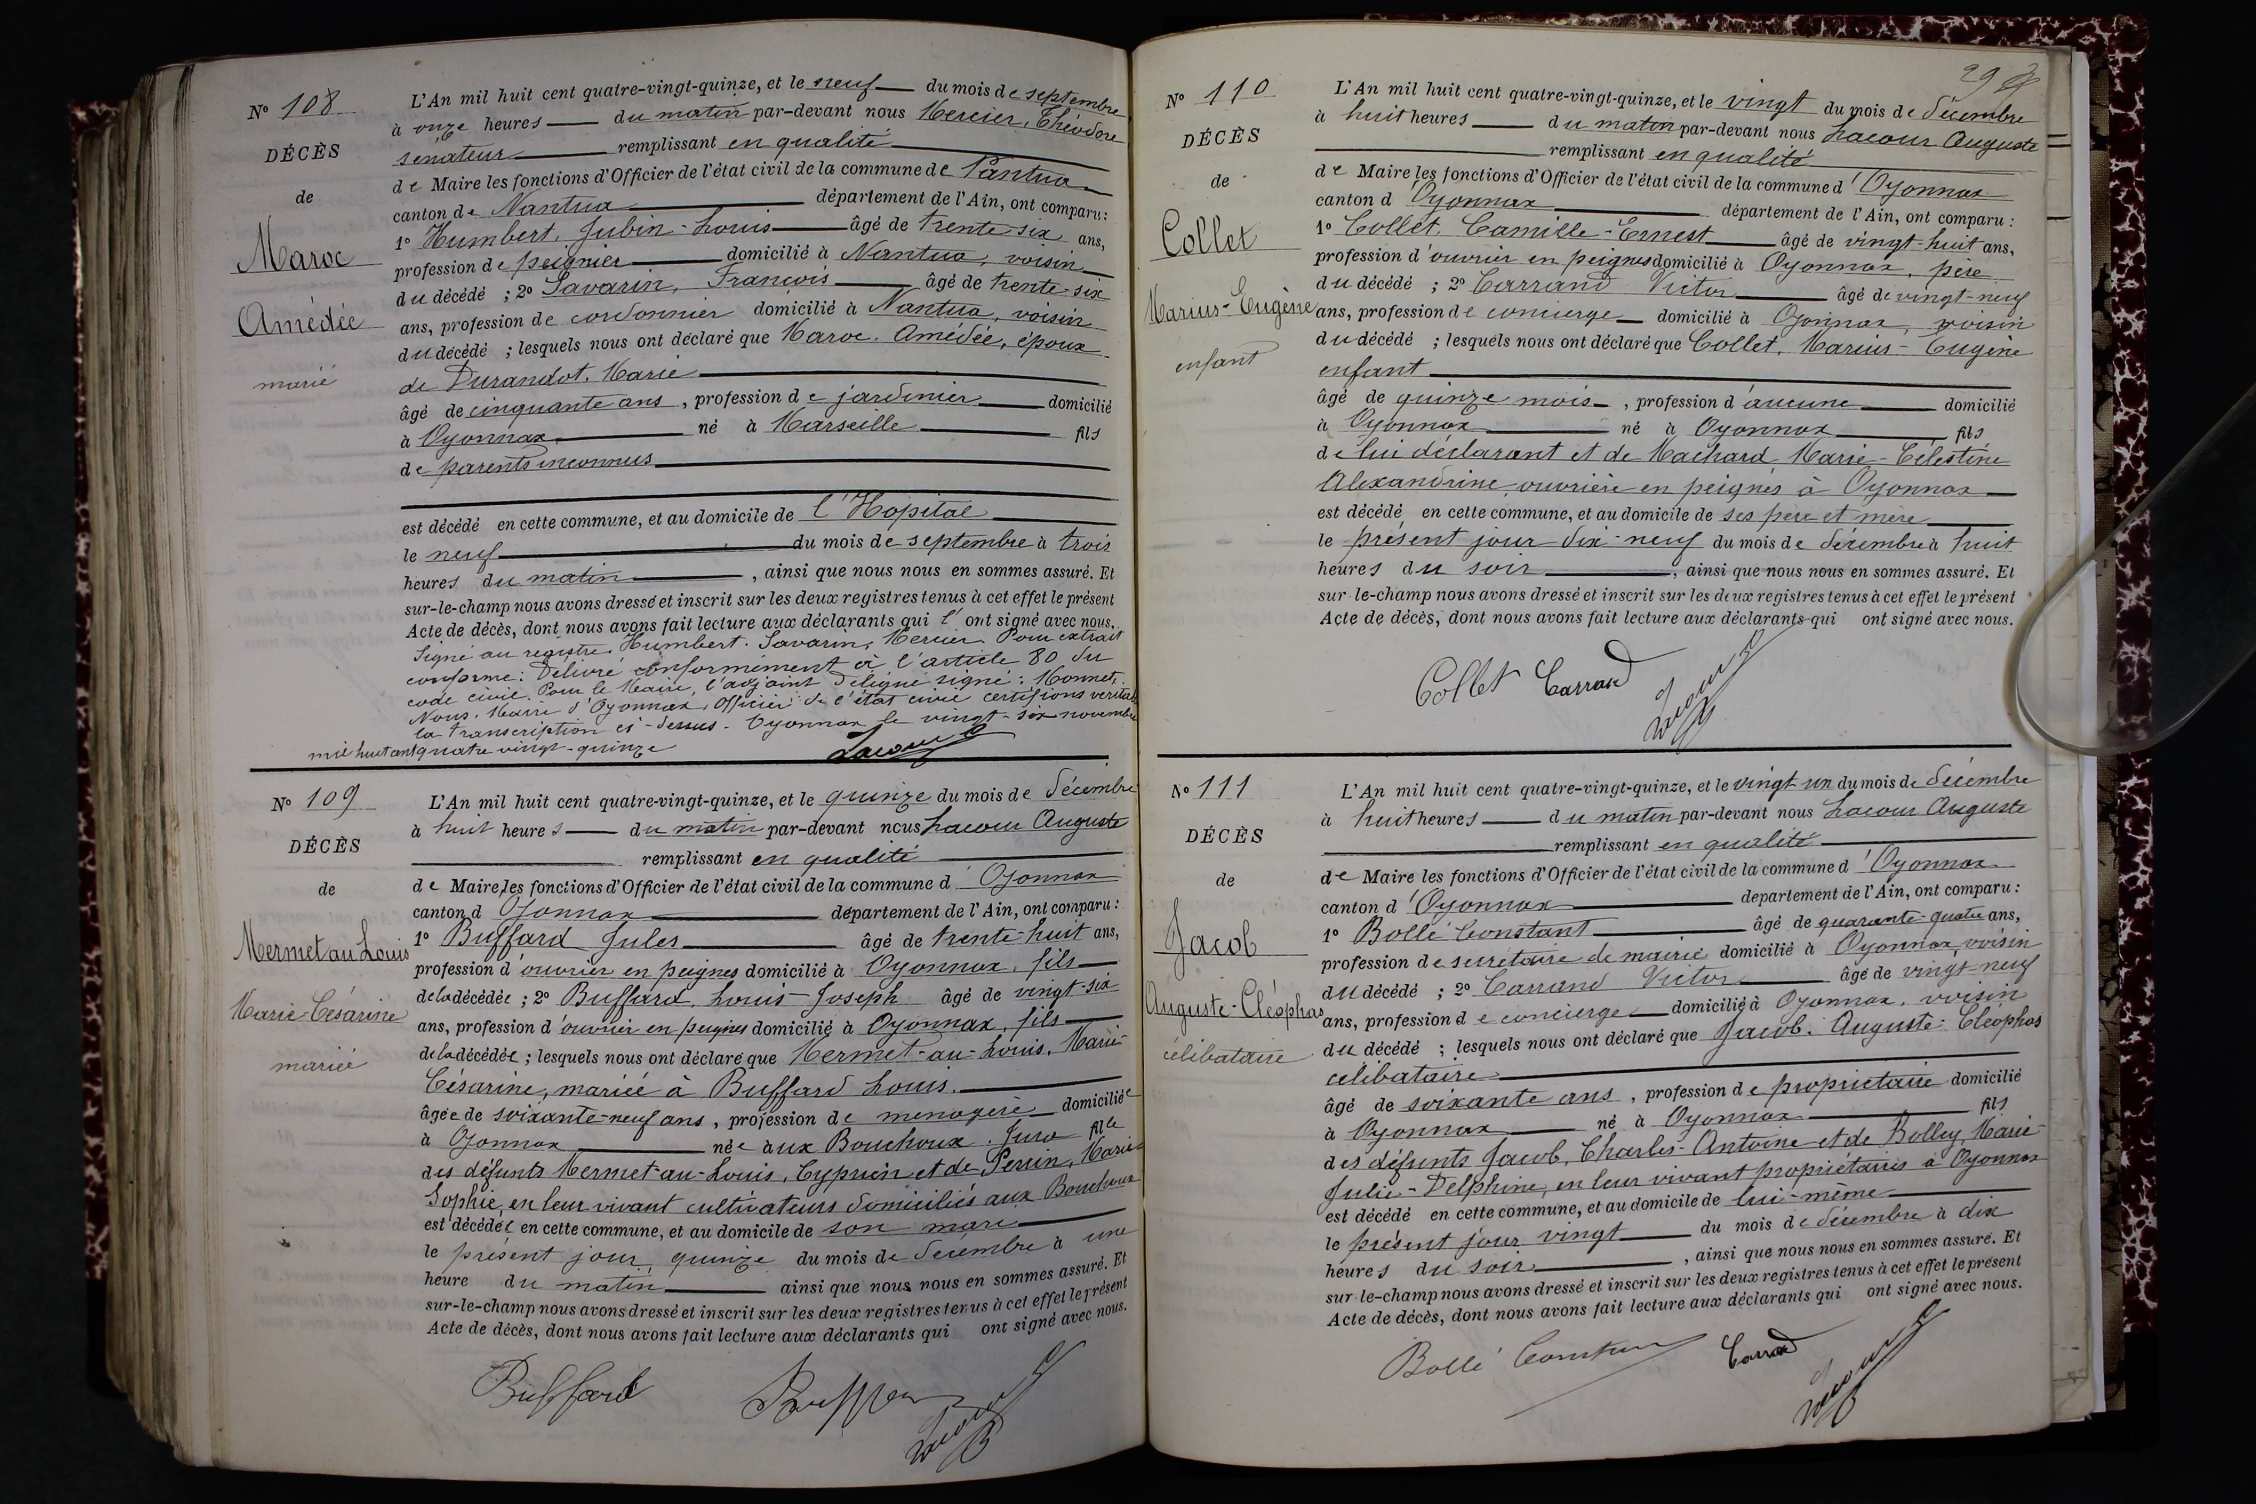 Nº 108
DÉCÈS
de
Maroc
Amédée
marié
L'An mil huit cent quatre-vingt-quinze, et le neuf du mois de septembre
à onze heures du matin par-devant nous Mercier, Théodore
sénateur remplissant en qualité
de Maire les fonctions d'Officier de l'état civil de la commune de Nantua
canton de Nantua département de l'Ain, ont comparu :
1º Humbert, Jubin-Louis âgé de trente six ans,
profession de peignier domicilié à Nantua, voisin
du décédé ; 2º Savarin, François âgé de trente-six
ans, profession de cordonnier domicilié à Nantua, voisin
du décédé ; lesquels nous ont déclaré que Maroc. Amédée, époux
de Durandot. Marie
âgé de cinquante ans, profession de jardinier domicilié
à Oyonnax né à Marseille fils
de parents inconnus
est décédé en cette commune, et au domicile de l'Hopital
le neuf du mois de septembre à trois
heures du matin, ainsi que nous nous en sommes assuré. Et
sur-le-champ nous avons dressé et inscrit sur les deux registres tenus à cet effet le présent
Acte de décès, dont nous avons fait lecture aux déclarants qui l' ont signé avec nous.
Signé au registre. Humbert. Savarin, Mercier. Pour extrait
conforme : Délivré conformément à l'article 80 du
code civil. Pour le Maire, l'adjoint délégué signé : Monnet.
Nous, Maire d'Oyonnax, Officier de l'état civil certifions véritable
la transcription ci-dessus. Oyonnax le vingt-six novembre
mil huit cent quatre vingt-quinze
Lacour
Nº 109
DÉCÈS
de
Mermet au Louis
Marie-Césarine
mariée
L'An mil huit cent quatre-vingt-quinze, et le quinze du mois de décembre
à huit heures du matin par-devant nous Lacour Auguste
remplissant en qualité
de Maire les fonctions d'Officier de l'état civil de la commune d' Oyonnax
canton d Oyonnax département de l'Ain, ont comparu :
1º Buffard Jules âgé de trente-huit ans,
profession d'ouvrier en peignes domicilié à Oyonnax, fils
de la décédée ; 2º Buffard, Louis-Joseph âgé de vingt-six
ans, profession d'ouvrier en peignes domicilié à Oyonnax, fils
de la décédée ; lesquels nous ont déclaré que Mermet-au-Louis, Marie-
Césarine, mariée à Buffard Louis.
âgée de soixante-neuf ans, profession de ménagère domiciliée
à Oyonnax née aux Bouchoux. Jura fille
des défunts Mermet-au-Louis, Cyprien et de Perrin, Marie-
Sophie, en leur vivant cultivateurs domiciliés aux Bouchoux
est décédée en cette commune, et au domicile de son mari
le présent jour, quinze du mois de décembre à une
heure du matin ainsi que nous nous en sommes assuré. Et
sur-le-champ nous avons dressé et inscrit sur les deux registres tenus à cet effet le présent
Acte de décès, dont nous avons fait lecture aux déclarants qui ont signé avec nous.
Buffard Buffard Lacour
29
Nº 110
DÉCÈS
de
Collet
Marius-Eugène
enfant
L'An mil huit cent quatre-vingt-quinze, et le vingt du mois de décembre
à huit heures du matin par-devant nous Lacour Auguste
remplissant en qualité
de Maire les fonctions d'Officier de l'état civil de la commune d'Oyonnax
canton d'Oyonnax département de l'Ain, ont comparu :
1º Collet, Camille-Ernest âgé de vingt-huit ans,
profession d'ouvrier en peignes domicilié à Oyonnax, père
du décédé ; 2º Carrand Victor âgé de vingt-neuf
ans, profession de concierge domicilié à Oyonnax, voisin
du décédé ; lesquels nous ont déclaré que Collet, Marius-Eugène
enfant
âgé de quinze mois, profession d'aucune domicilié
à Oyonnax né à Oyonnax fils
de lui déclarant et de Machard Marie-Célestine
Alexandrine, ouvrière en peignes à Oyonnax
est décédé en cette commune, et au domicile de ses père et mère
le présent jour dix-neuf du mois de décembre à huit
heures du soir, ainsi que nous nous en sommes assuré. Et
sur-le-champ nous avons dressé et inscrit sur les deux registres tenus à cet effet le présent
Acte de décès, dont nous avons fait lecture aux déclarants qui ont signé avec nous.
Collet Carrand Lacour
Nº 111
DÉCÈS
de
Jacob
Auguste-Cléophas
célibataire
L'An mil huit cent quatre-vingt-quinze, et le vingt un du mois de décembre
à huit heures du matin par-devant nous Lacour Auguste
remplissant en qualité
de Maire les fonctions d'Officier de l'état civil de la commune d'Oyonnax
canton d'Oyonnax département de l'Ain, ont comparu :
1º Bollé Constant âgé de quarante-quatre ans,
profession de secrétaire de mairie domicilié à Oyonnax, voisin
du décédé ; 2º Carrand Victor âgé de vingt-neuf
ans, profession de concierge domicilié à Oyonnax, voisin
du décédé ; lesquels nous ont déclaré que Jacob. Auguste-Cléophas
célibataire
âgé de soixante ans, profession de propriétaire domicilié
à Oyonnax né à Oyonnax fils
des défunts Jacob, Charles-Antoine et de Bolley, Marie-
Julie-Delphine, en leur vivant propriétaires à Oyonnax
est décédé en cette commune, et au domicile de lui-même
le présent jour vingt du mois de décembre à dix
heures du soir, ainsi que nous nous en sommes assuré. Et
sur-le-champ nous avons dressé et inscrit sur les deux registres tenus à cet effet le présent
Acte de décès, dont nous avons fait lecture aux déclarants qui ont signé avec nous.
Bollé Constant Carrand Lacour